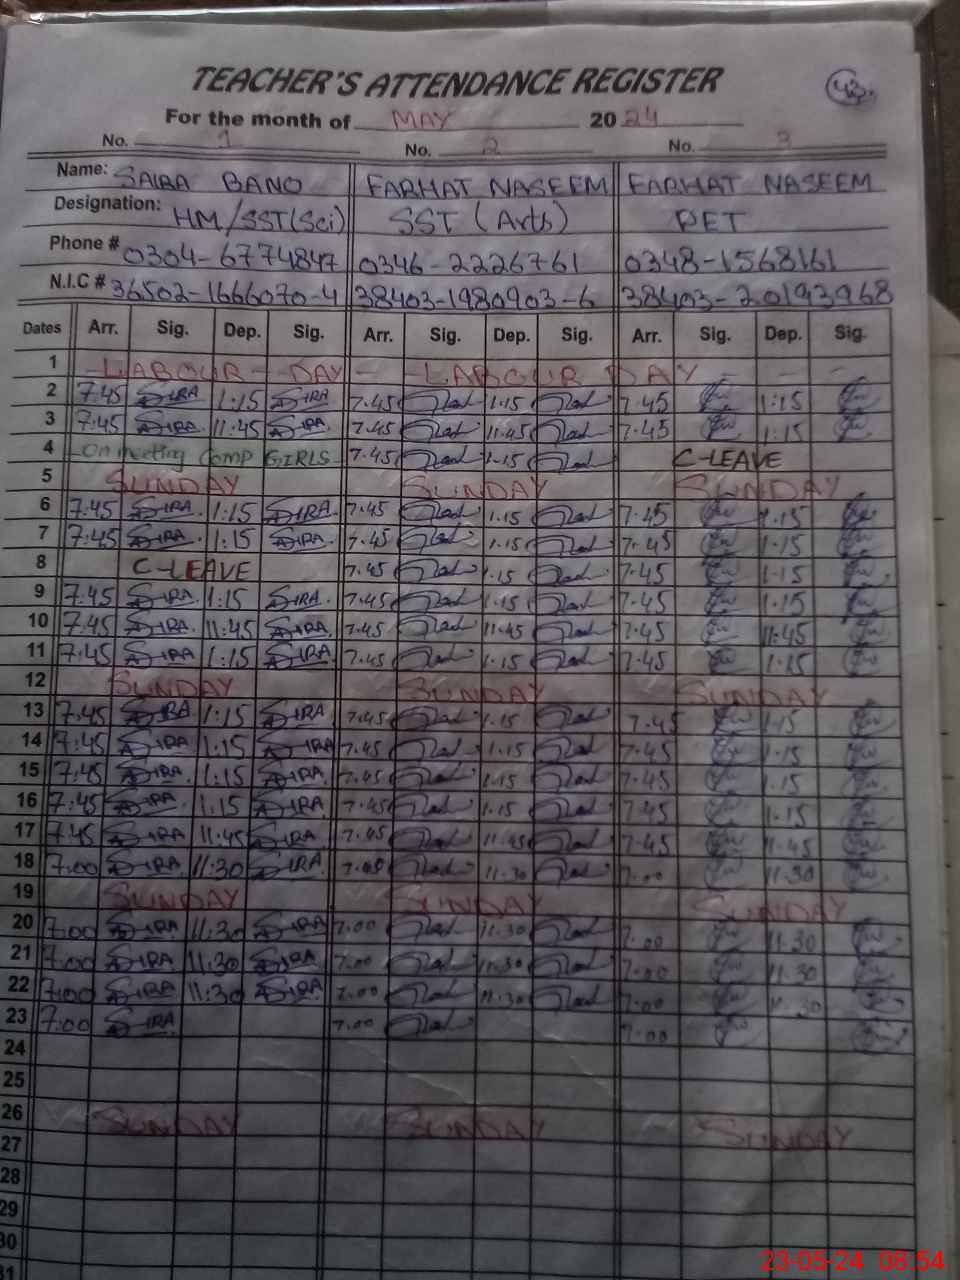 TEACHER'S ATTENDANCE REGISTER
For the month of MAY 2024
No. 1 No. 2 No. 3
Name: SAIRA BANO FARHAT NASEEM FARHAT NASEEM
Designation: HM/SST(Sci) SST (Arts) PET
Phone # 0304-6774847 0346-2226761 0348-1568161
N.I.C # 36502-1666070-4 38403-1980903-6 38403-20193968
Dates Arr. Sig. Dep. Sig. Arr. Sig. Dep. Sig. Arr. Sig. Dep. Sig.
1 -LABOUR - DAY - -LABOUR DAY - - -
2 7:45 SIRA 1:15 SIRA 7.45 1.15 7.45 1:15
3 7:45 SIRA 11:45 SIRA 7.45 11.45 7.45 1:15
4 On meeting Comp GIRLS 7.45 1.15 C-LEAVE
5 SUNDAY SUNDAY SUNDAY
6 7:45 SIRA 1:15 SIRA 7.45 1.15 7.45 1.15
7 7:45 SIRA 1:15 SIRA 7.45 1.15 7.45 1.15
8 C-LEAVE 7.45 1.15 7.45 1.15
9 7:45 SIRA 1:15 SIRA 7.45 1.15 7.45 1.15
10 7:45 SIRA 11:45 SIRA 7.45 11.45 7.45 11:45
11 7:45 SIRA 1:15 SIRA 7.45 1.15 7.45 1.15
12 SUNDAY SUNDAY SUNDAY
13 7:45 SIRA 1:15 SIRA 7.45 1.15 7.45 1.15
14 7:45 SIRA 1:15 SIRA 7.45 1.15 7.45 1.15
15 7:45 SIRA 1:15 SIRA 7.45 1.15 7.45 1.15
16 7:45 SIRA 1:15 SIRA 7.45 1.15 7.45 1.15
17 7:45 SIRA 11:45 SIRA 7.45 11.45 7.45 11.45
18 7:00 SIRA 11:30 SIRA 7.00 11.30 7.00 11.30
19 SUNDAY SUNDAY SUNDAY
20 7:00 SIRA 11:30 SIRA 7.00 11.30 7.00 11.30
21 7:00 SIRA 11:30 SIRA 7.00 11.30 7.00 11.30
22 7:00 SIRA 11:30 SIRA 7.00 11.30 7.00 11.30
23 7:00 SIRA 7.00 7.00
24
25
26 SUNDAY SUNDAY SUNDAY
27
28
29
30
31
23-05-24 08:54